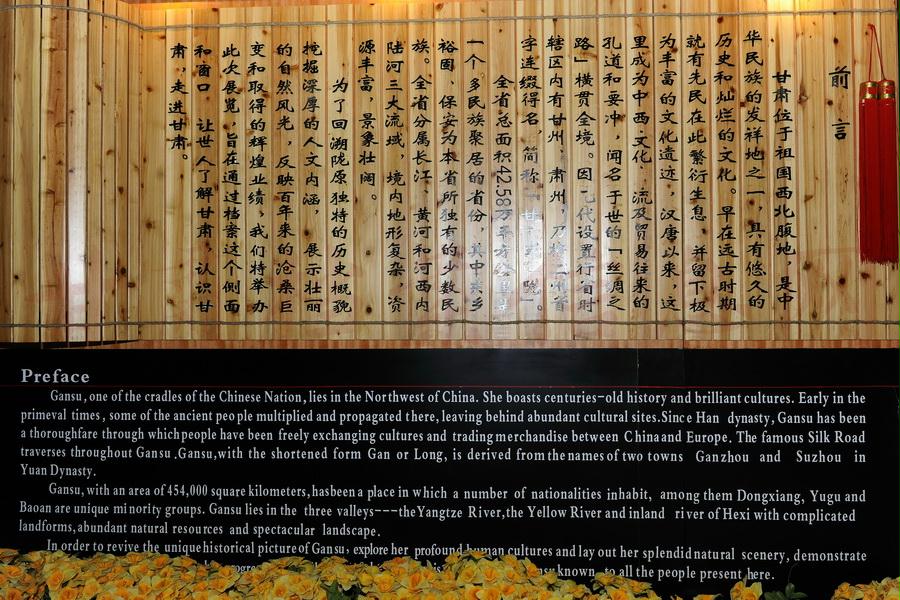 前言
甘肃位于祖国西北腹地，是中
华民族的发祥地之一，具有悠久的
历史和灿烂的文化。早在远古时期
就有先民在此繁衍生息，并留下极
为丰富的文化遗迹，汉唐以来，这
里成为中西文化 流及贸易往来的
孔道和要冲，闻名于世的「丝绸之
路」横贯全境。因 代设置行省时
辖区内有甘州、肃州，乃将二州首
字连缀得名，简称「甘」或「陇」。
全省总面积42.58万平方公里
一个多民族聚居的省份，其中东乡
裕固、保安为本省所独有的少数民
族。全省分属长江、黄河和河西内
陆河三大流域，境内地形复杂，资
源丰富，景象壮阔。
为了回溯陇原独特的历史概貌
挖掘深厚的人文内涵，展示壮丽
的自然风光，反映百年来的沧桑巨
变和取得的辉煌业绩，我们特举办
此次展览，旨在通过档案这个侧面
和窗口 让世人了解甘肃，认识甘
肃，走进甘肃。
Preface
Gansu, one of the cradles of the Chinese Nation, lies in the Northwest of China. She boasts centuries-old history and brilliant cultures. Early in the
primeval times, some of the ancient people multiplied and propagated there, leaving behind abundant cultural sites.Since Han dynasty, Gansu has been
a thoroughfare through whichpeople have been freely exchanging cultures and trading merchandise between Chinaand Europe. The famous Silk Road
traverses throughout Gansu .Gansu,with the shortened form Gan or Long, is derived from the names of two towns Ganzhou and Suzhou in
Yuan Dynasty.
Gansu, with an area of 454,000 square kilometers, hasbeen a place in which a number of nationalities inhabit, among them Dongxiang, Yugu and
Baoan are unique minority groups. Gansu lies in the three valleys---theYangtze River,the Yellow River and inland river of Hexi with complicated
landforms,abundant natural resources and spectacular landscape.
In order to revive the unique historical picture of Gansu, explore her profound human cultures and lay out her splendid natural scenery, demonstrate
known to all the people present here.